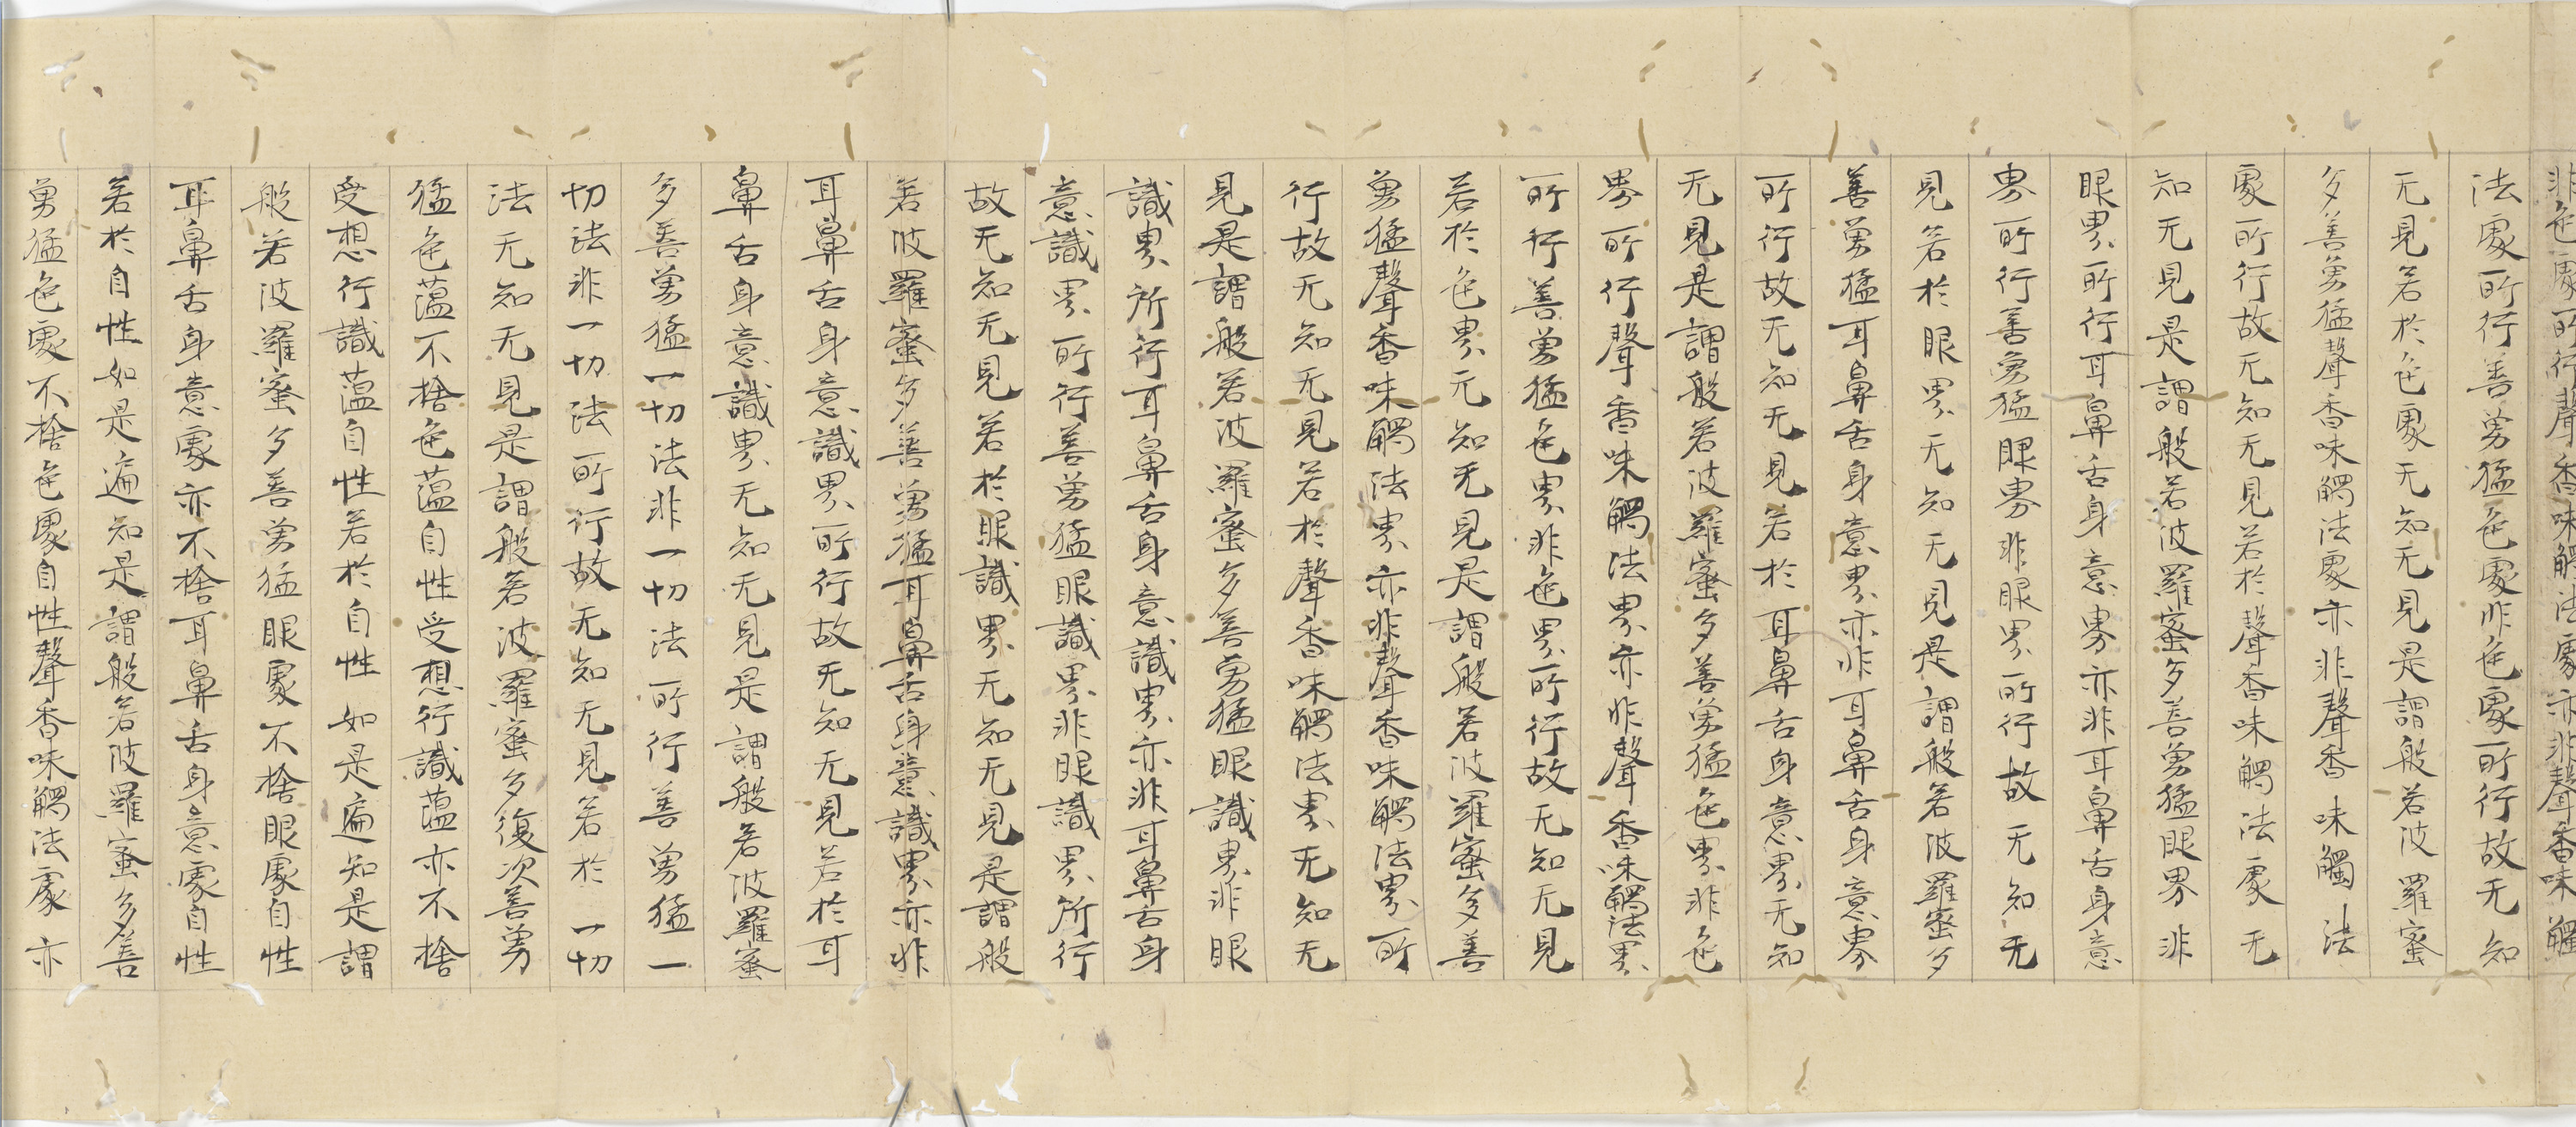 非色處所行聲香味觸法處亦非聲香味觸
法處所行善勇猛色處非色處所行故无知
无見若於色處无知无見是謂般若波羅蜜
多善勇猛聲香味觸法處亦非聲香味觸法
處所行故无知无見若於聲香味觸法處无
知无見是謂般若波羅蜜多善勇猛眼界非
眼界所行耳鼻舌身意界亦非耳鼻舌身意
界所行善勇猛眼界非眼界所行故无知无
見若於眼界无知无見是謂般若波羅蜜多
善勇猛耳鼻舌身意界亦非耳鼻舌身意界
所行故无知无見若於耳鼻舌身意界无知
无見是謂般若波羅蜜多善勇猛色界非色
界所行聲香味觸法界亦非聲香味觸法界
所行善勇猛色界非色界所行故无知无見
若於色界无知无見是謂般若波羅蜜多善
勇猛聲香味觸法界亦非聲香味觸法界所
行故无知无見若於聲香味觸法界无知无
見是謂般若波羅蜜多善勇猛眼識界非眼
識界所行耳鼻舌身意識界亦非耳鼻舌身
意識界所行善勇猛眼識界非眼識界所行
故无知无見若於眼識界无知无見是謂般
若波羅蜜多善勇猛耳鼻舌身意識界亦非
耳鼻舌身意識界所行故无知无見若於耳
鼻舌身意識界无知无見是謂般若波羅蜜
多善勇猛一切法非一切法所行善勇猛一
切法非一切法所行故无知无見若於一切
法无知无見是謂般若波羅蜜多復次善勇
猛色蘊不捨色蘊自性受想行識蘊亦不捨
受想行識蘊自性若於自性如是遍知是謂
般若波羅蜜多善勇猛眼處不捨眼處自性
耳鼻舌身意處亦不捨耳鼻舌身意處自性
若於自性如是遍知是謂般若波羅蜜多善
勇猛色處不捨色處自性聲香味觸法處亦